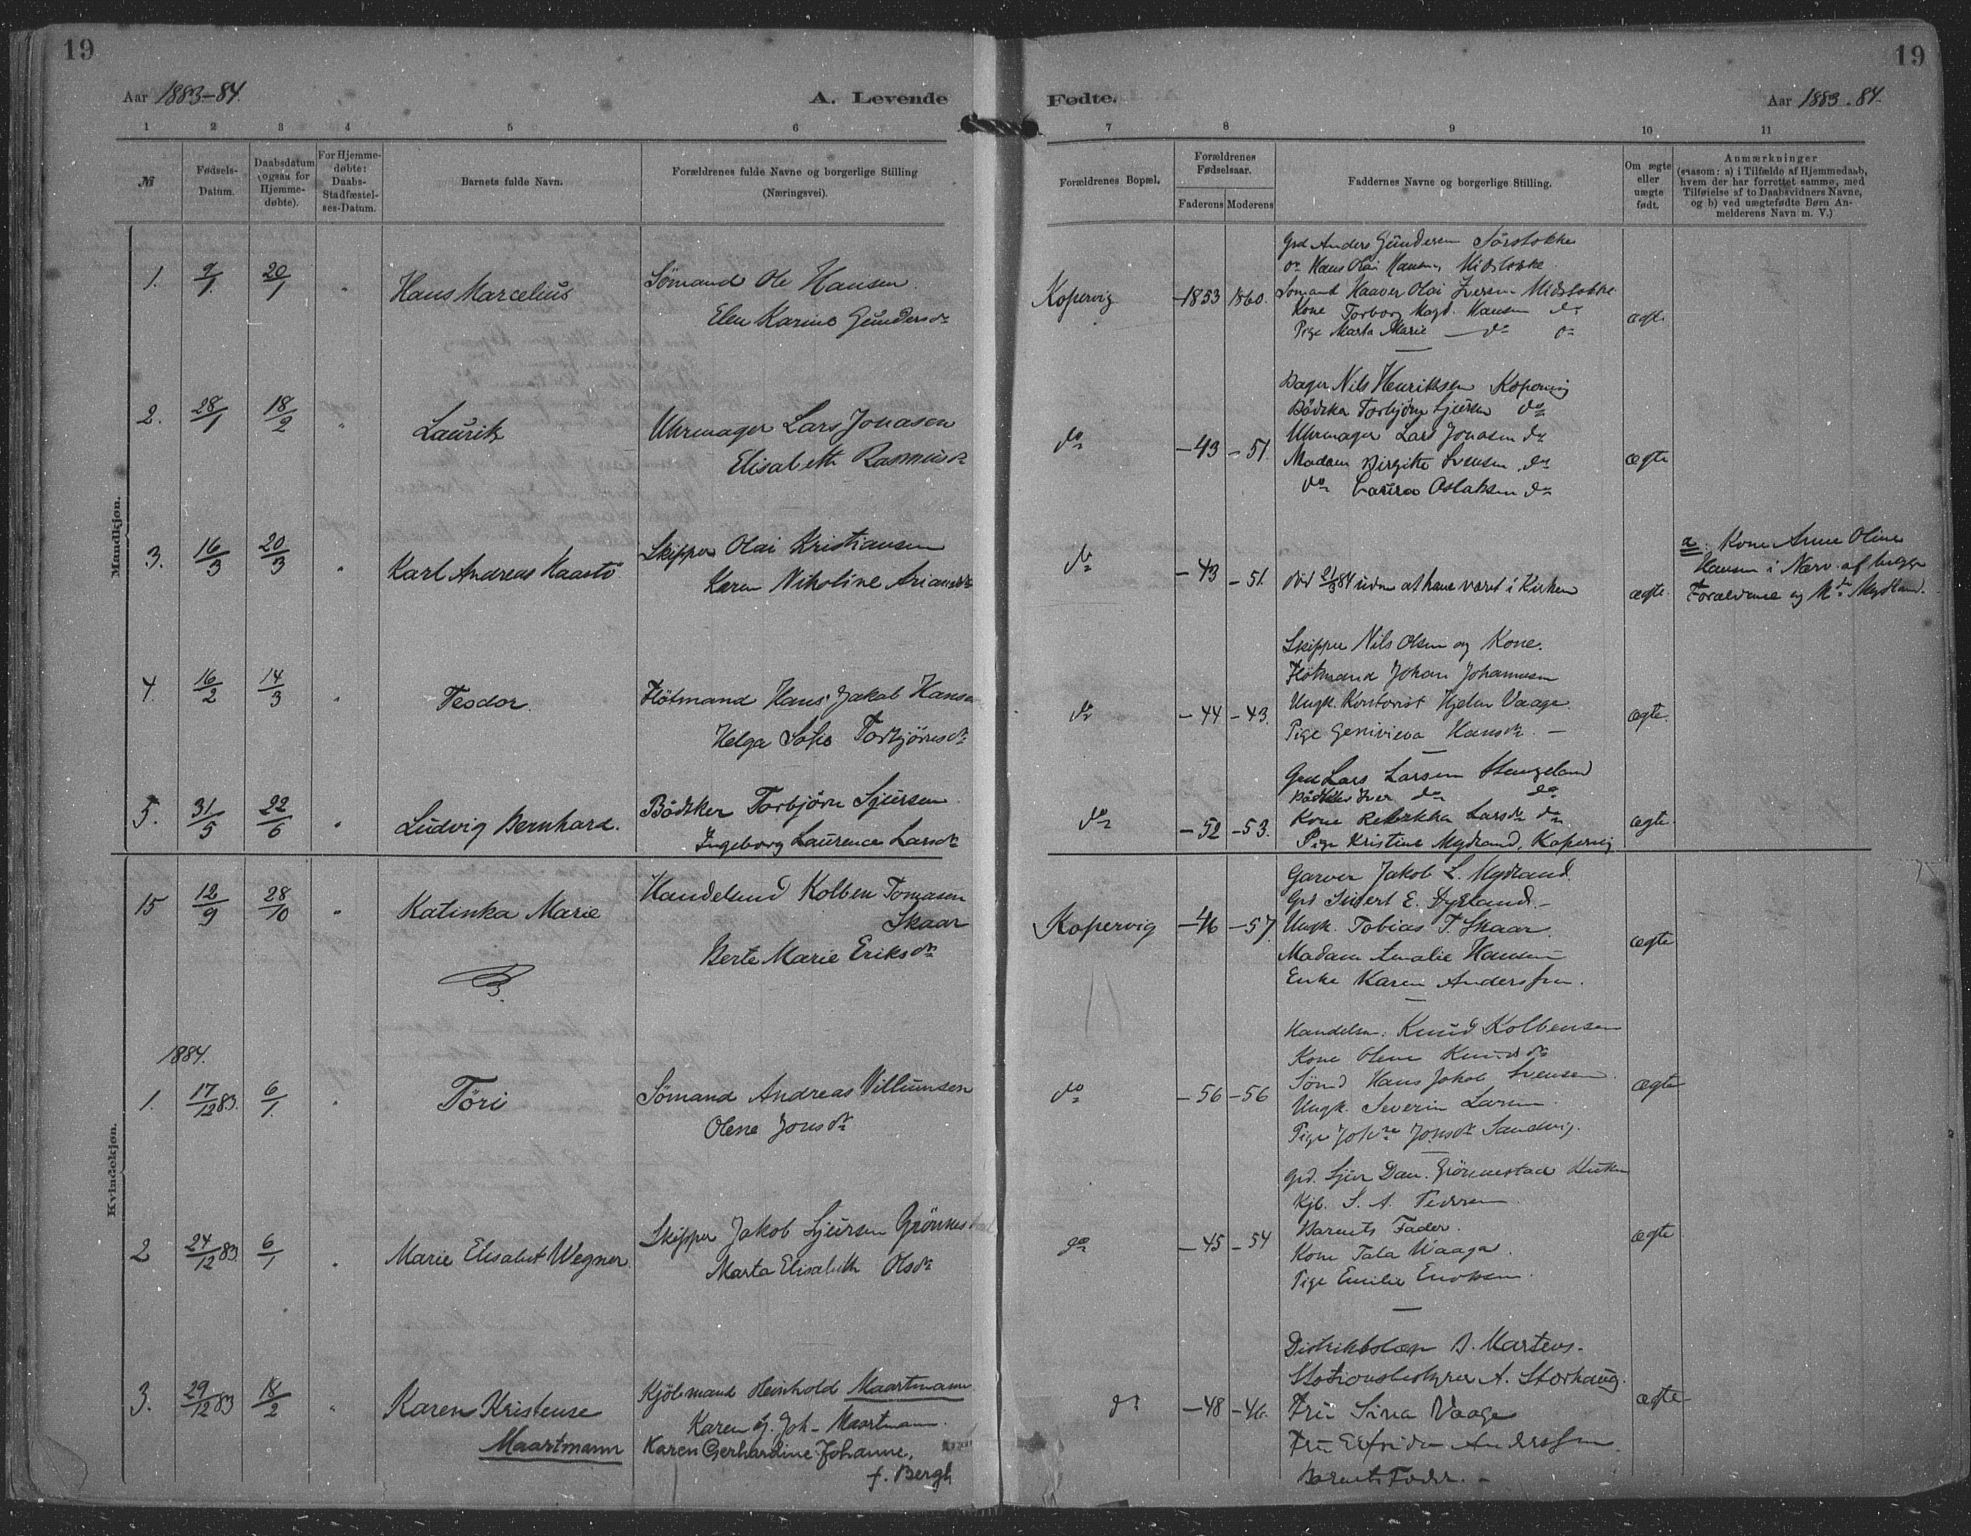 19
Aar 1883-84.
A. Levende
1 2 3 4 5 6
№
Fødsels-
Datum.
Daabsdatum
(ogsaa for
Hjemme-
døbte).
For Hjemme-
døbte:
Daabs-
Stadfæstel-
ses-Datum.
Barnets fulde Navn.
Forældrenes fulde Navne og borgerlige Stilling
(Næringsvei).
Mandkjøn.
1. 9/1 20/1 " Hans Marcelius
Sømand Ole Hansen
Elen Karine Gundersdr
2. 28/1 18/2 " Lauritz
Uhrmager Lars Jonasen
Elisabeth Rasmusdr
3. 16/3 20/3 " Karl Andreas Kaastø
Skipper Olai Kristiansen
Karen Nikoline
4 16/2 14/3 " Teodor.
Fløtmand Hans Jakob Hansen
Helga Sofie Torbjørnsdr
5. 31/5 22/6 " Ludvig Bernhard.
Bødtker Torbjørn Sjursen
Ingeborg Laurence Larsdr
15 12/9 28/10 " Katinka Marie
Handelsmd Kolben Tomasen
Skaar
Berte Marie Eriksdr
Kvindekjøn.
1884.
1. 17/12 83. 6/1 " Töri
Sømand Andreas Villumsen
Olene Jonsdr
2 24/12 83. 6/1 " Marie Elisabet Wegner
Skipper Jakob Sjursen Grønnestad
Marta Elisabeth Olsdr
3. 29/12 83 18/2 " Karen Kristense
Maartmann
Kjøbmand Reinhold Maartmann
Karen g. Joh- Maartmann.
Karen Gerhardine Johanne,
f. Bergh
19
Fødte.
Aar 1883-84.
7 8 9 10 11
Forældrenes Bopæl.
Forældrenes
Fødselsaar.
Faderens Moderens
Faddernes Navne og borgerlige Stilling.
Om ægte
eller
uægte
født.
Anmærkninger
(saasom: a) i Tilfælde af Hjemmedaab,
hvem der har forrettet samme, med
Tilføielse af to Daabsvidners Navne,
og b) ved uægtefødte Børn An-
melderens Navn m. V.)
Kopervig -1853 1860. ægte
Grd Anders Gundersen Sørstokke
do Hans Olai Hansen Midstokke
Sømand Haaver Olai Iversen Midstokke
Kone Torborg Magd. Hansen do
Pige Marta Marie — do do
do -43 -51. ægte
Bager Nils Henriksen Kopervig
Bødtker Torbjørn Sjursen do
Uhrmager Lars Jonasen do
Madam Birgitte Svensen do
do Laura Oslaksen do
do -43 -51. ægte.
Død 21/3 84 uden at have været i Kirken
a. Kone Anne Oline
Hansen i Nærv. af begge
Forældrene og Md Mydland.
do -44 -43. ægte.
Skipper Nils Olsen og Kone.
Fløtmand Johan Johannesen
Ungk. Kontorist Hjelm Vaage
Pige Genivieva Hansdr. —
do -52 -53. ægte.
Grd Lars Larsen Stangeland
Bødtker Iver do do
Kone Rebekka Larsdr do
Pige Kristine Mydland, Kopervig
Kopervig -46 -57. ægte
Garver Jakob L. Mydland
Grd Sivert E. Dyrland. -
Ungk. Tobias T. Skaar.
Madam Amalie Hansen
Enke Karen Anderssen.
do -56 -56 ægte
Handelsm. Knud Kolbensen
Kone Olene Knudsdr
Sømd Hans Jakob Svensen
Ungk. Severin Larsen.
Pige Johne Jonsdr Sandvig.
do -45 -54 ægte
Grd. Sjur Dan. Grönnestad
Kjb. S. A. Pedersen
Barnets Fader.
Kone Tala Waage.
Pige Emilie Enoksen.
do -48 -46. ægte
Distriktslæge B. Martens.
Stationsbestyrer A. Storhaug.
Fru Sina Vaage
Fru Elfrida Anderssen
Barnets Fader. -